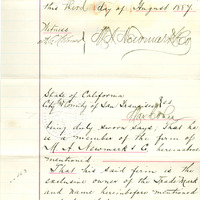 this third day of August 1887.
Witness
M. A. Newmark & Co.
State of California
City & County of San Francisco } ss
being duly sworn says, That he
is a member of the firm of
M. A. Newmark & Co, hereinabove
mentioned
That his said firm is the
exclusive owner of the Trade Mark
and name hereinbefore mentioned